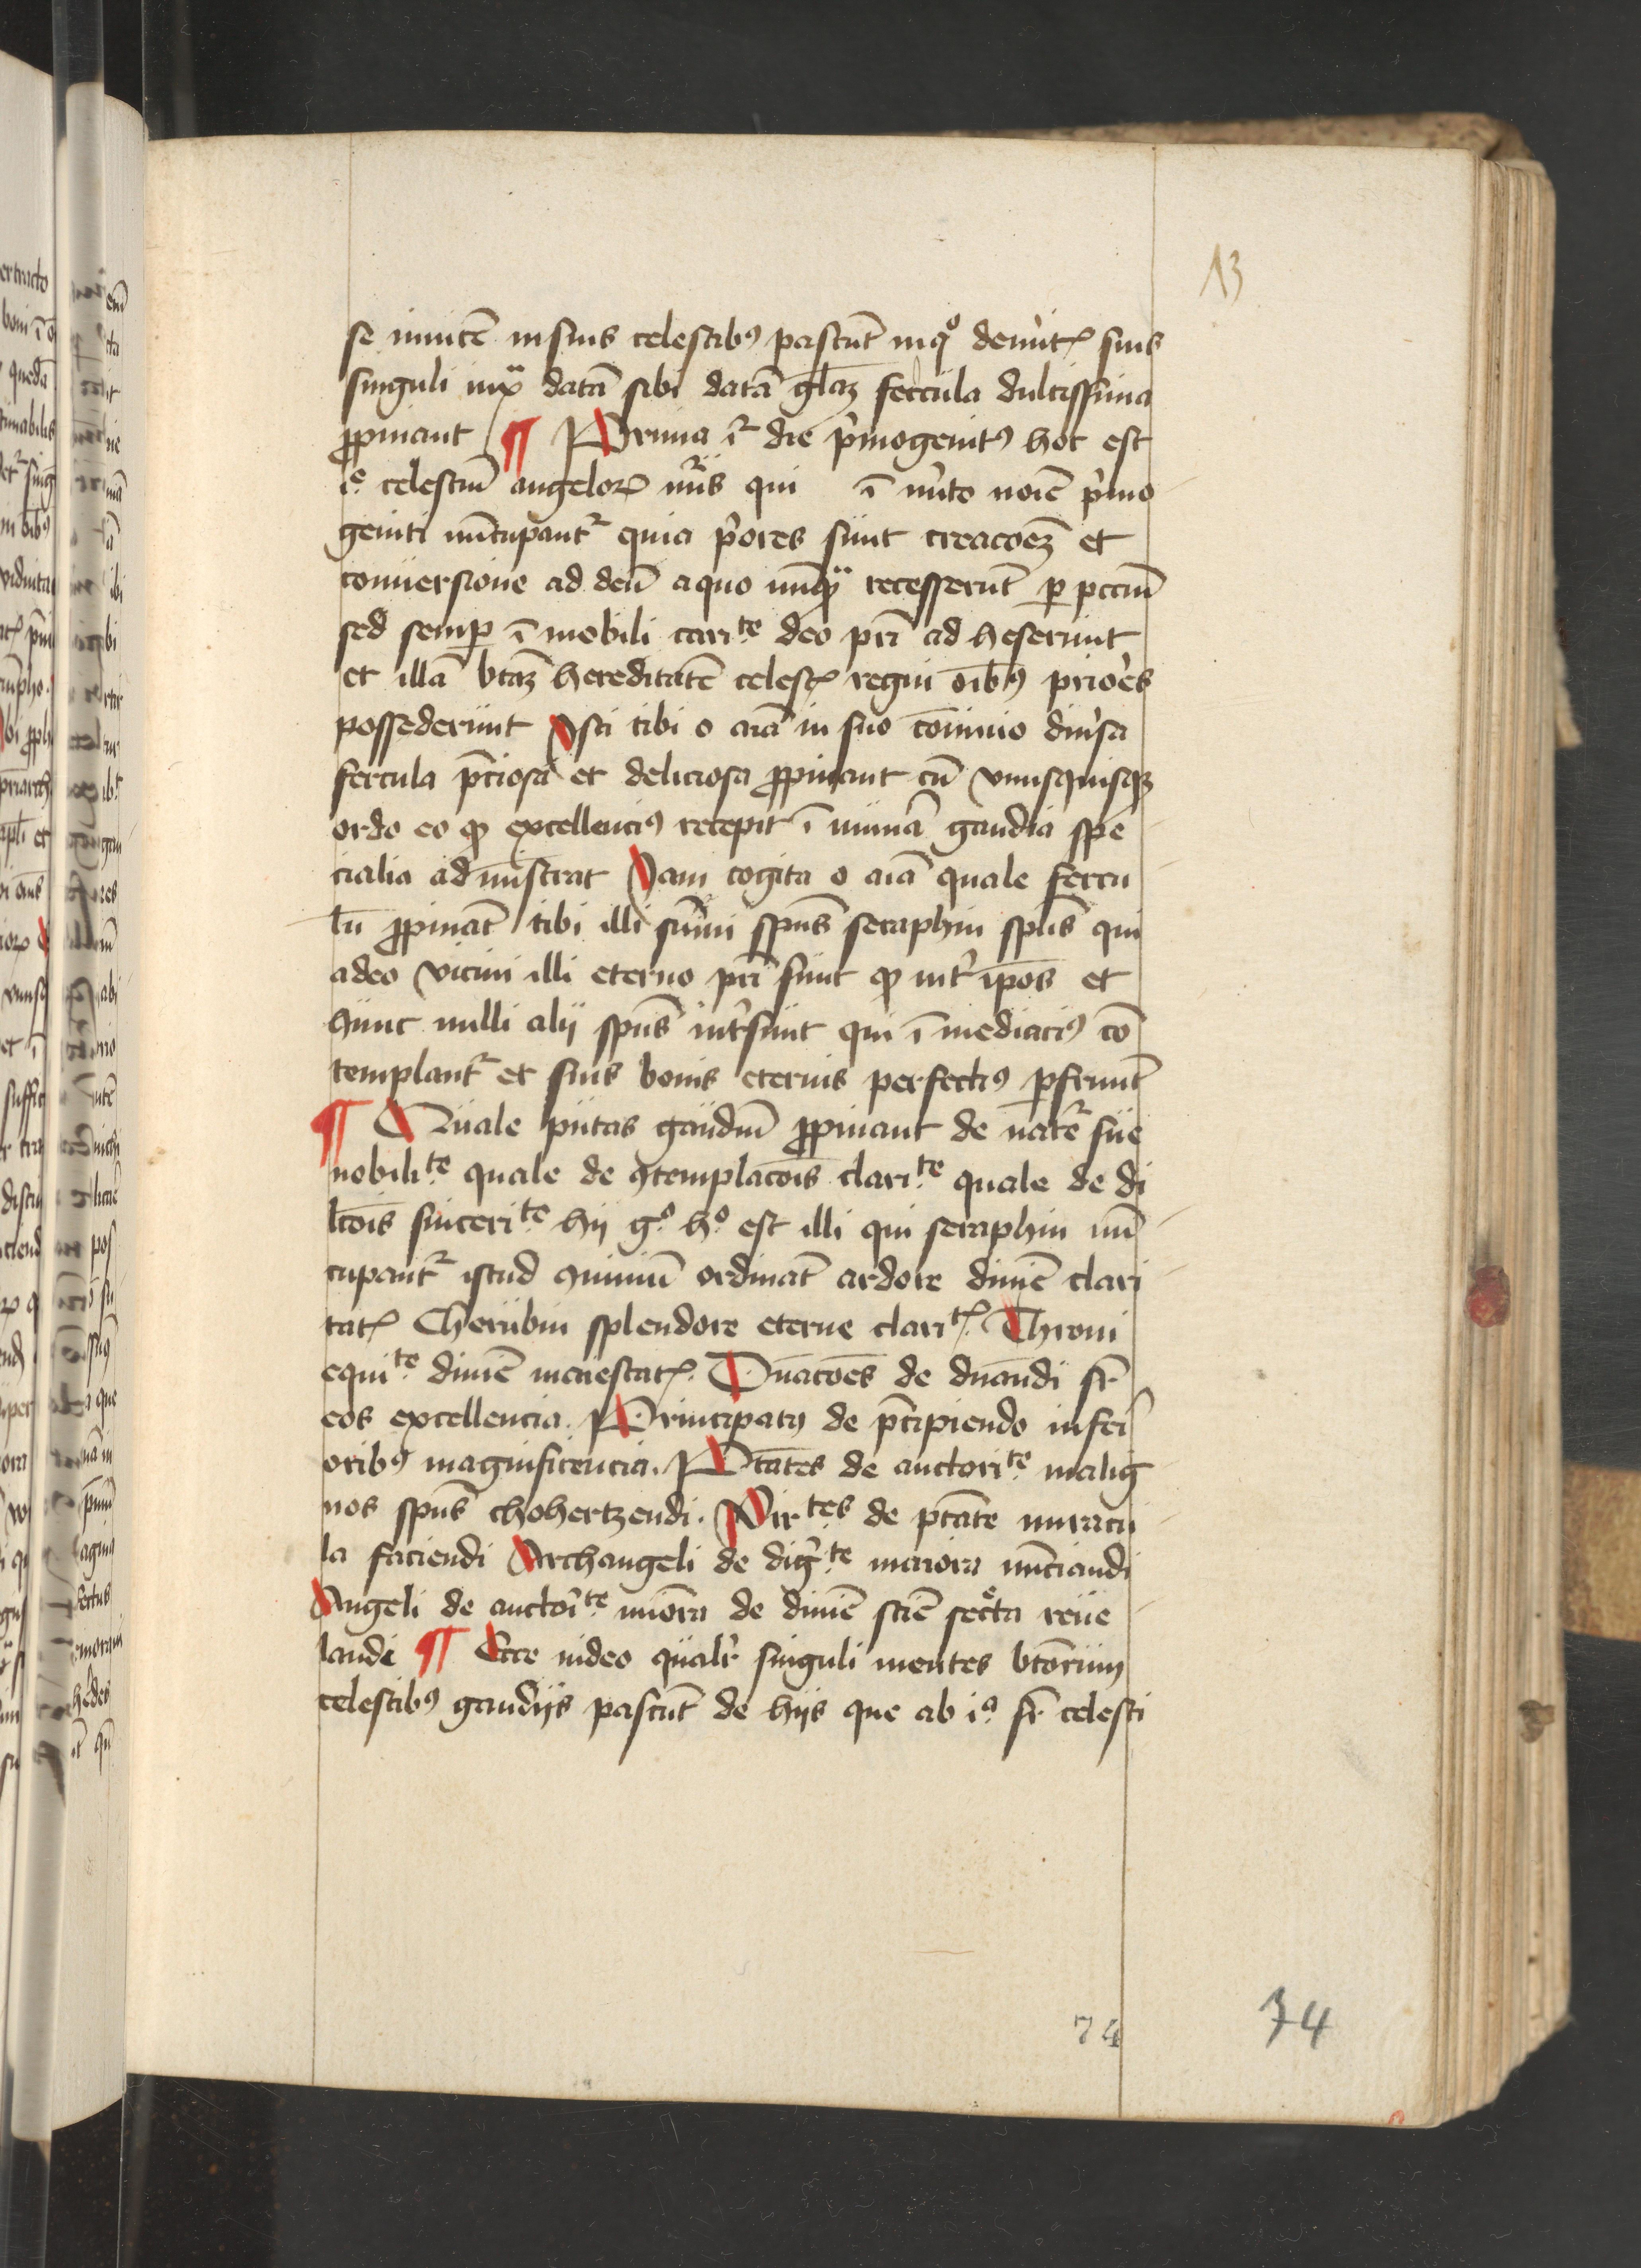 13
se inuicē in suis celestib⁹ pascūt in qͦ deuictꝭ suis
singuli iuxͣ datā sibi datā glāꝫ fercula dulcissima
ꝓpinant ¶ Prima iͬ die p̓mogenit⁹ hoc est
iͦ celestiū angeloꝝ nr̄is qui ī mͬito noīē p̓mo
geniti nūcupantͬ quia p̓ores sunt creacōeꝫ et
conuersione ad deū a quo nūqͣ recesserūt ꝑ pctm̄
sed semꝑ ī mobili cariᵗᵉ deo pr̄i adheserunt
et illā btāꝫ hereditatē celestꝭ regni oīb⁹ prio̓es
possederunt Isti tibi o aīa in suo cōuiuio diu̓sa
fercula p̄ciosa et deliciosa ꝓpinant cū vnusquisqꝫ
ordo eo ꝙ excellenci⁹ recepit ī munē gaudia spē
cialia administrat Iam cogita o aīa quale fercu
lū ꝓpināt tibi illi sūmi spūs seraphin spūs qui
adeo vicini illi eterno pr̄i sunt ꝙ int̓ ip̄os et
hunc nulli alij spūs int̓sunt qui ī mediaci⁹ cō
templantͬ et suis bonis eternis perfecti⁹ ꝑfruūt
¶ Quale putas gaudiū ꝓpinant de natͬe sue
nobiliᵗᵉ quale de ꝯtemplacōis clariᵗᵉ quale de di
lcōis sinceriᵗᵉ hij gͦ hͦ est illi qui seraphin nū
cupantͬ istud ꝯuiuiū ordināt ardore diuīē clari
tatꝭ Cherubin splendore eterne clariᵗꝭ Throni
equiᵗᵉ diuīē maiestatꝭ Dn̄acōes de dn̄andi sͬ
eos excellencia. Principat⁹ de p̄cipiendo inferi
orib⁹ magnificencia. Ptātes de auctoriᵗᵉ malig
nos spūs chohertzendi. Virᵗᵉˢ de ptāte miracu
la faciendi Archangeli de digͬᵗᵉ maiora nūciandi
Angeli de aucto̓iᵗᵉ mīora de diuīē sciē secͬta reue
landi ¶ Ecce uideo qualr̓ singuli mentes btōrum
celestib⁹ gaudijs pascūt de hijs que ab iͦ sͬ celesti
74
74